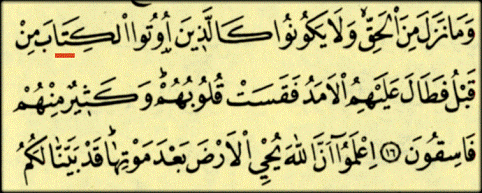 وَمَا نَزَلَ مِنَ الْحَقِّۙ وَلَا يَكُونُوا كَالَّذ۪ينَ اُو۫تُوا الْكِتَابَ مِنْ
قَبْلُ فَطَالَ عَلَيْهِمُ الْاَمَدُ فَقَسَتْ قُلُوبُهُمْۜ وَكَث۪يرٌ مِنْهُمْ
فَاسِقُونَ ﴿١٦﴾ اِعْلَمُٓوا اَنَّ اللّٰهَ يُحْيِ الْاَرْضَ بَعْدَ مَوْتِهَاۜ قَدْ بَيَّنَّا لَكُمُ